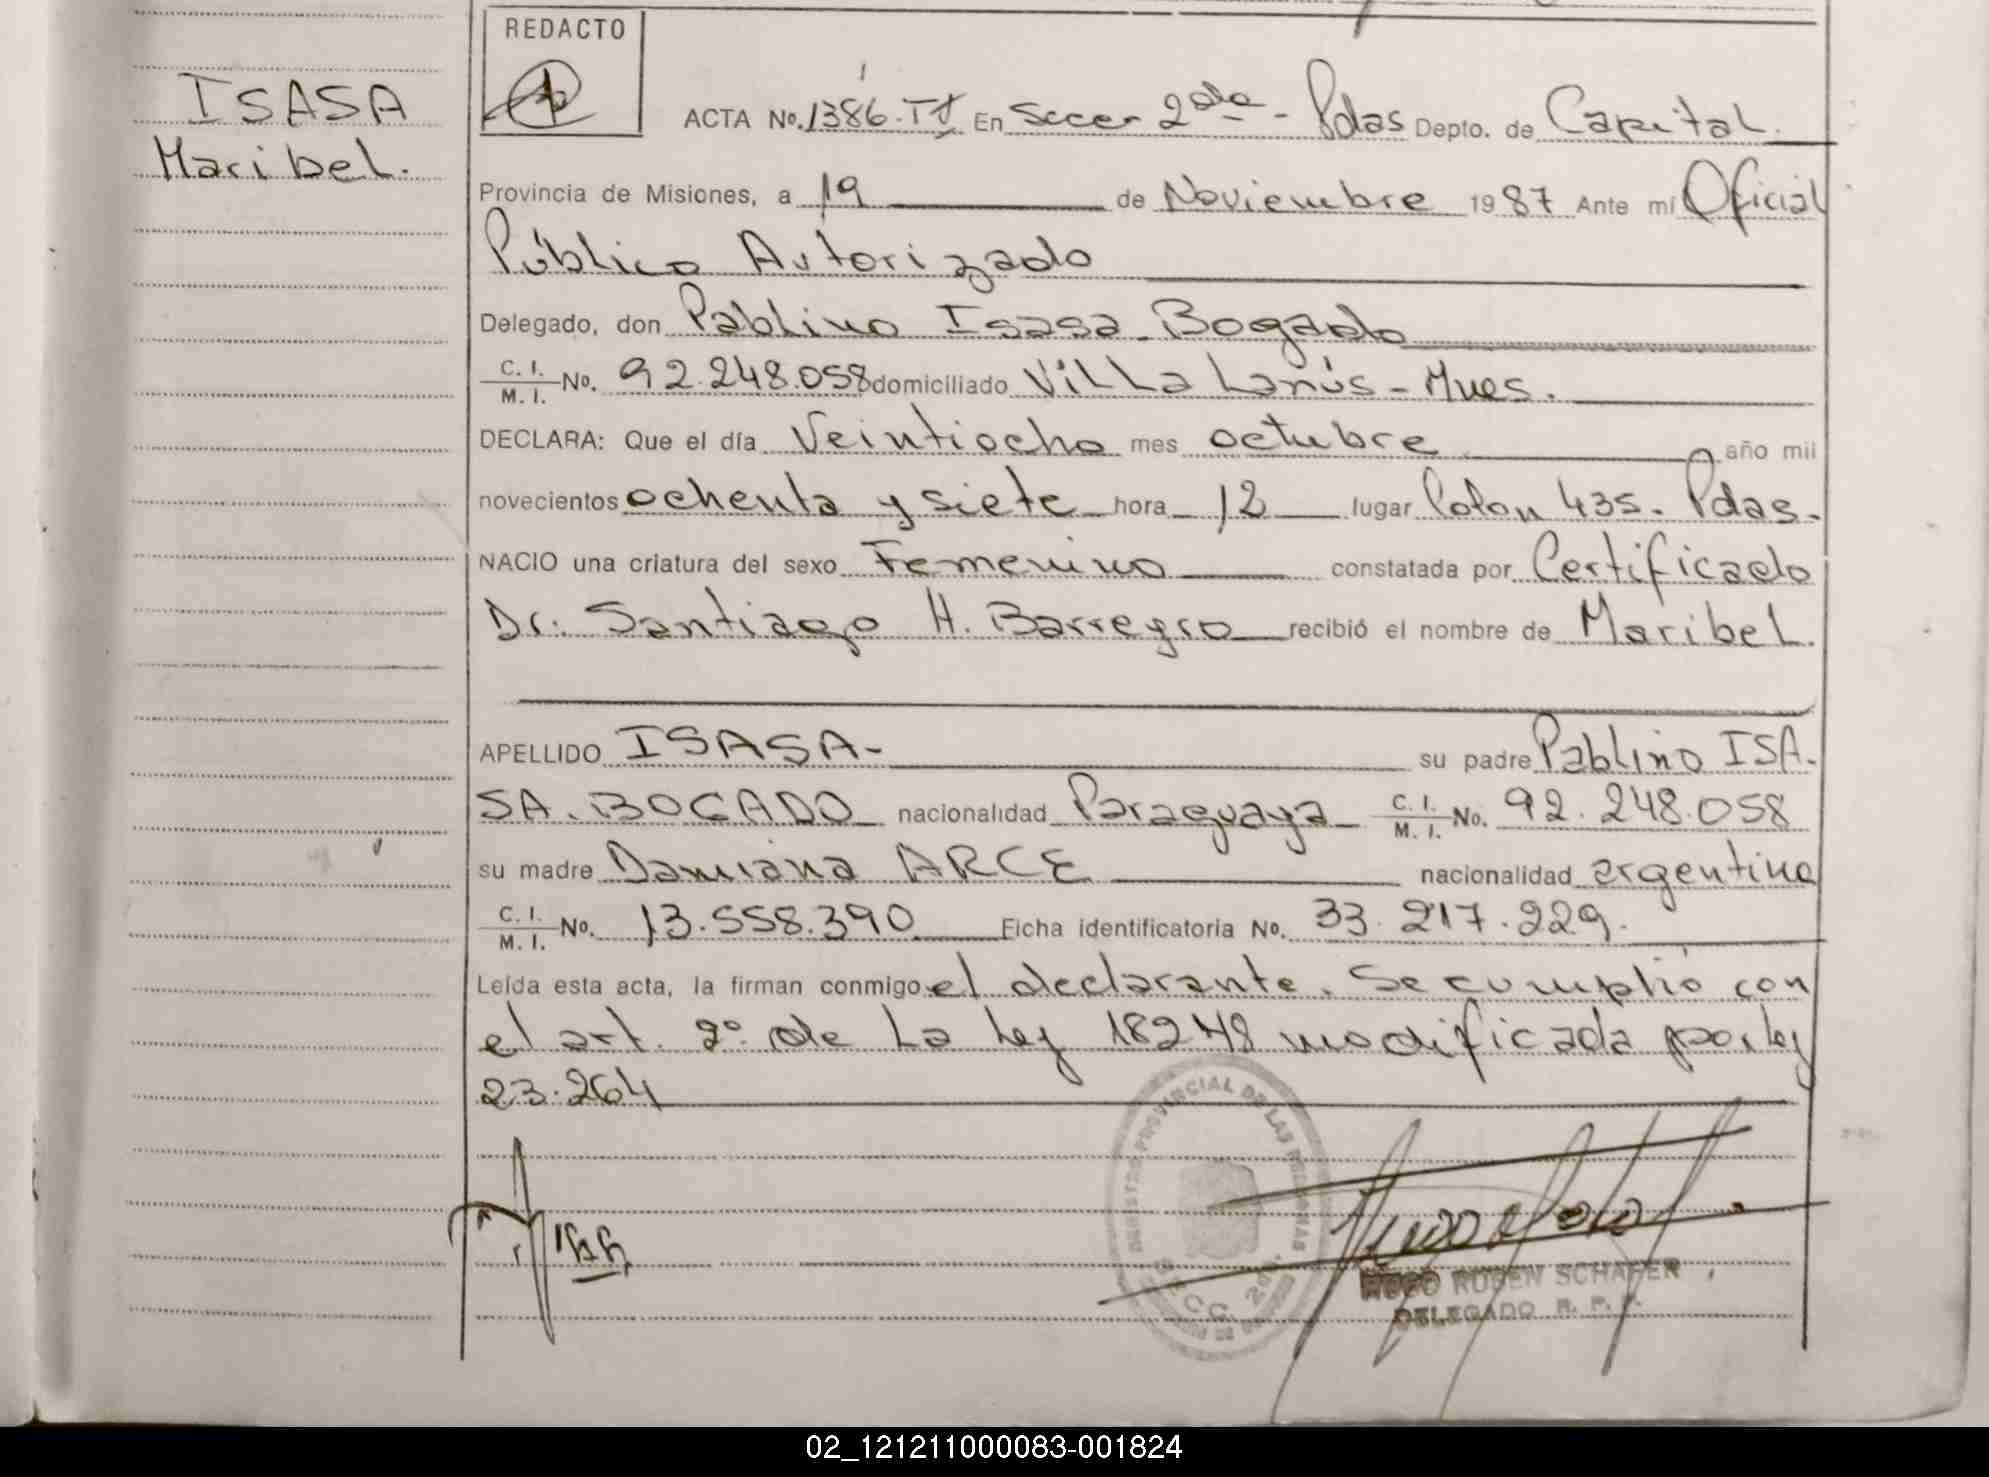 REDACTO
ISASA
Maribel.
ACTA No. 1386. TI En Seccer 2da - Pdas Depto. de Capital.
Provincia de Misiones, a 19 de Noviembre 1987 Ante mí Oficial
Público Autorizado
Delegado, don Pablino Isasa Bogado
C. I. / M. I. No. 92.248.058 domiciliado Villa Lanús - Mnes.
DECLARA: Que el día Veintiocho mes octubre año mil
novecientos ochenta y siete hora 12 lugar Colon 435. Pdas.
NACIO una criatura del sexo Femenino constatada por Certificado
Dr. Santiago H. Barreyro recibió el nombre de Maribel.
APELLIDO ISASA- su padre Pablino ISA-
SA. BOGADO nacionalidad Paraguaya C. I. / M. I. No. 92.248.058
su madre Damiana ARCE nacionalidad argentina
C. I. / M. I. No. 13.558.390 Ficha identificatoria No. 33.217.229.
Leída esta acta, la firman conmigo el declarante. Se cumplió con
el art. 2° de La Ley 18248 modificada por ley
23.264
REGISTRO PROVINCIAL DE LAS PERSONAS
HUGO RUBEN SCHAFER
DELEGADO R. P. P.
02_121211000083-001824